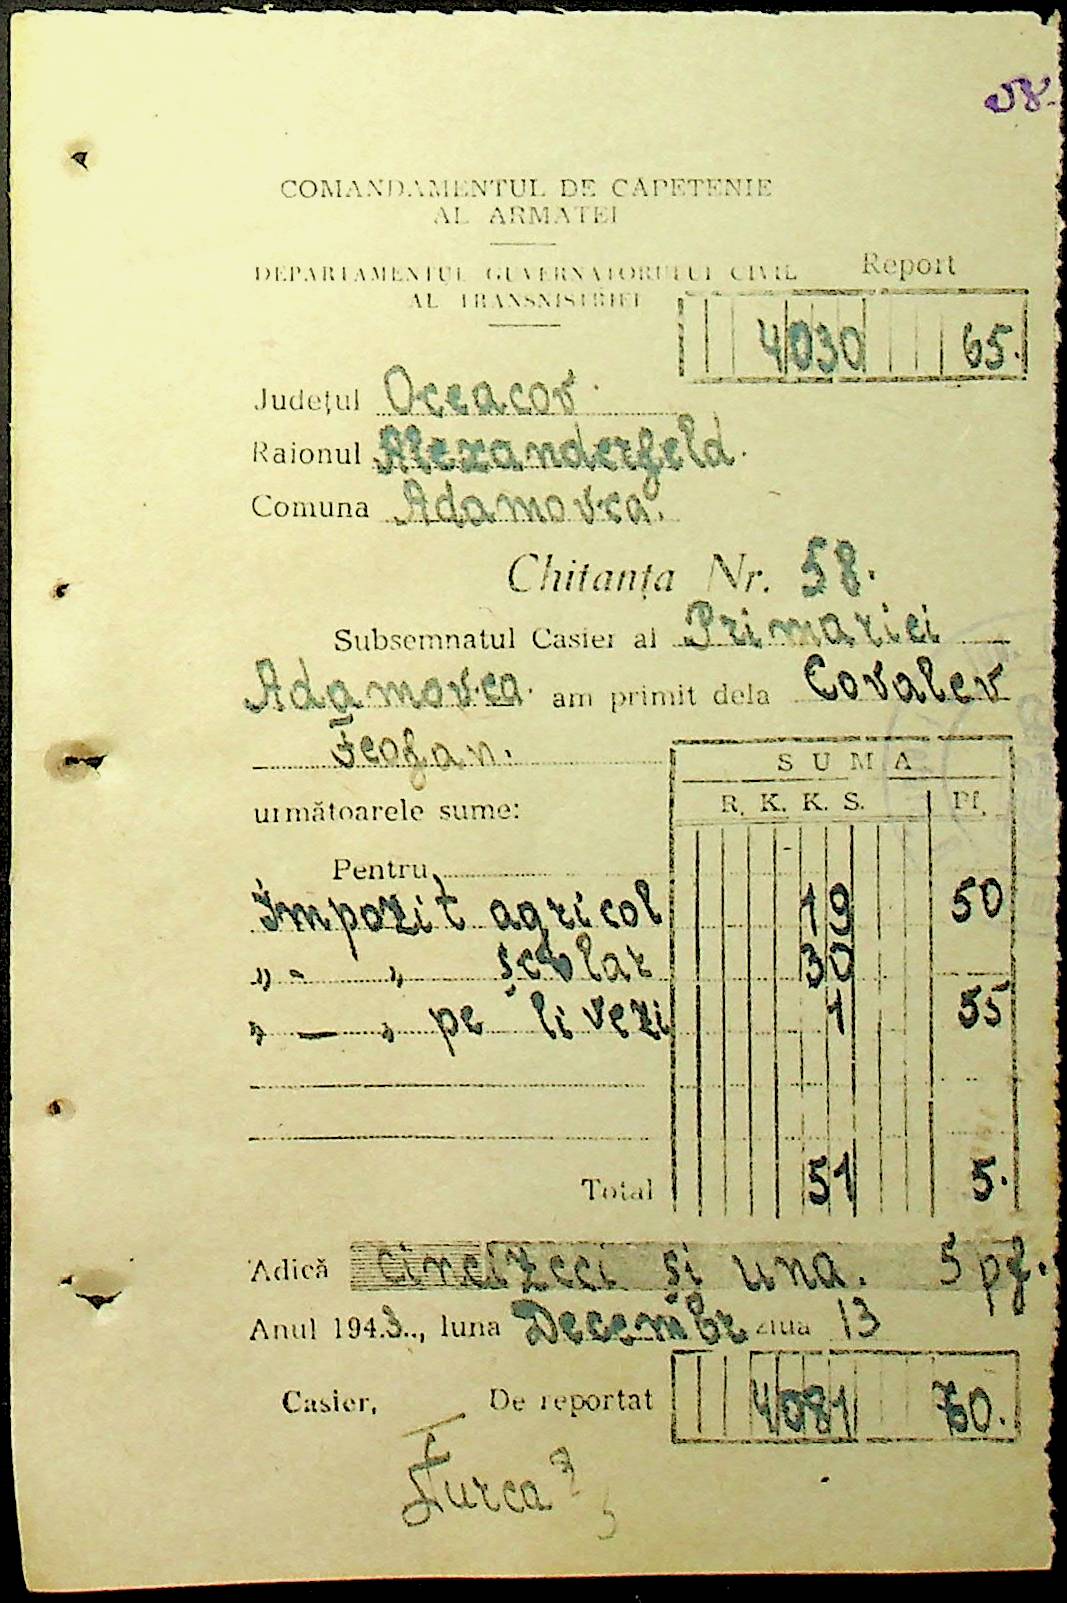 58.
COMANDAMENTUL DE CAPETENIE
AL ARMATEI
DEPARTAMENTUL GUVERNATORULUI CIVIL
AL TRANSNISTRIEI
Report
4030 65.
Județul Oceacov.
Raionul Alexanderfeld.
Comuna Adamovca.
Chitanța Nr. 58.
Subsemnatul Casier al Primariei
Adamovca. am primit dela Covalev
Feofan.
SUMA
următoarele sume: R. K. K. S. Pf.
Pentru
Impozit agricol 19 50
„ - „ școlar 30
„ — „ pe livezi 1 55
Total 51 5.
Adică cincizeci și una. 5 pf.
Anul 1943.., luna Decembr ziua 13
Casier, De reportat 4081 70.
Turca